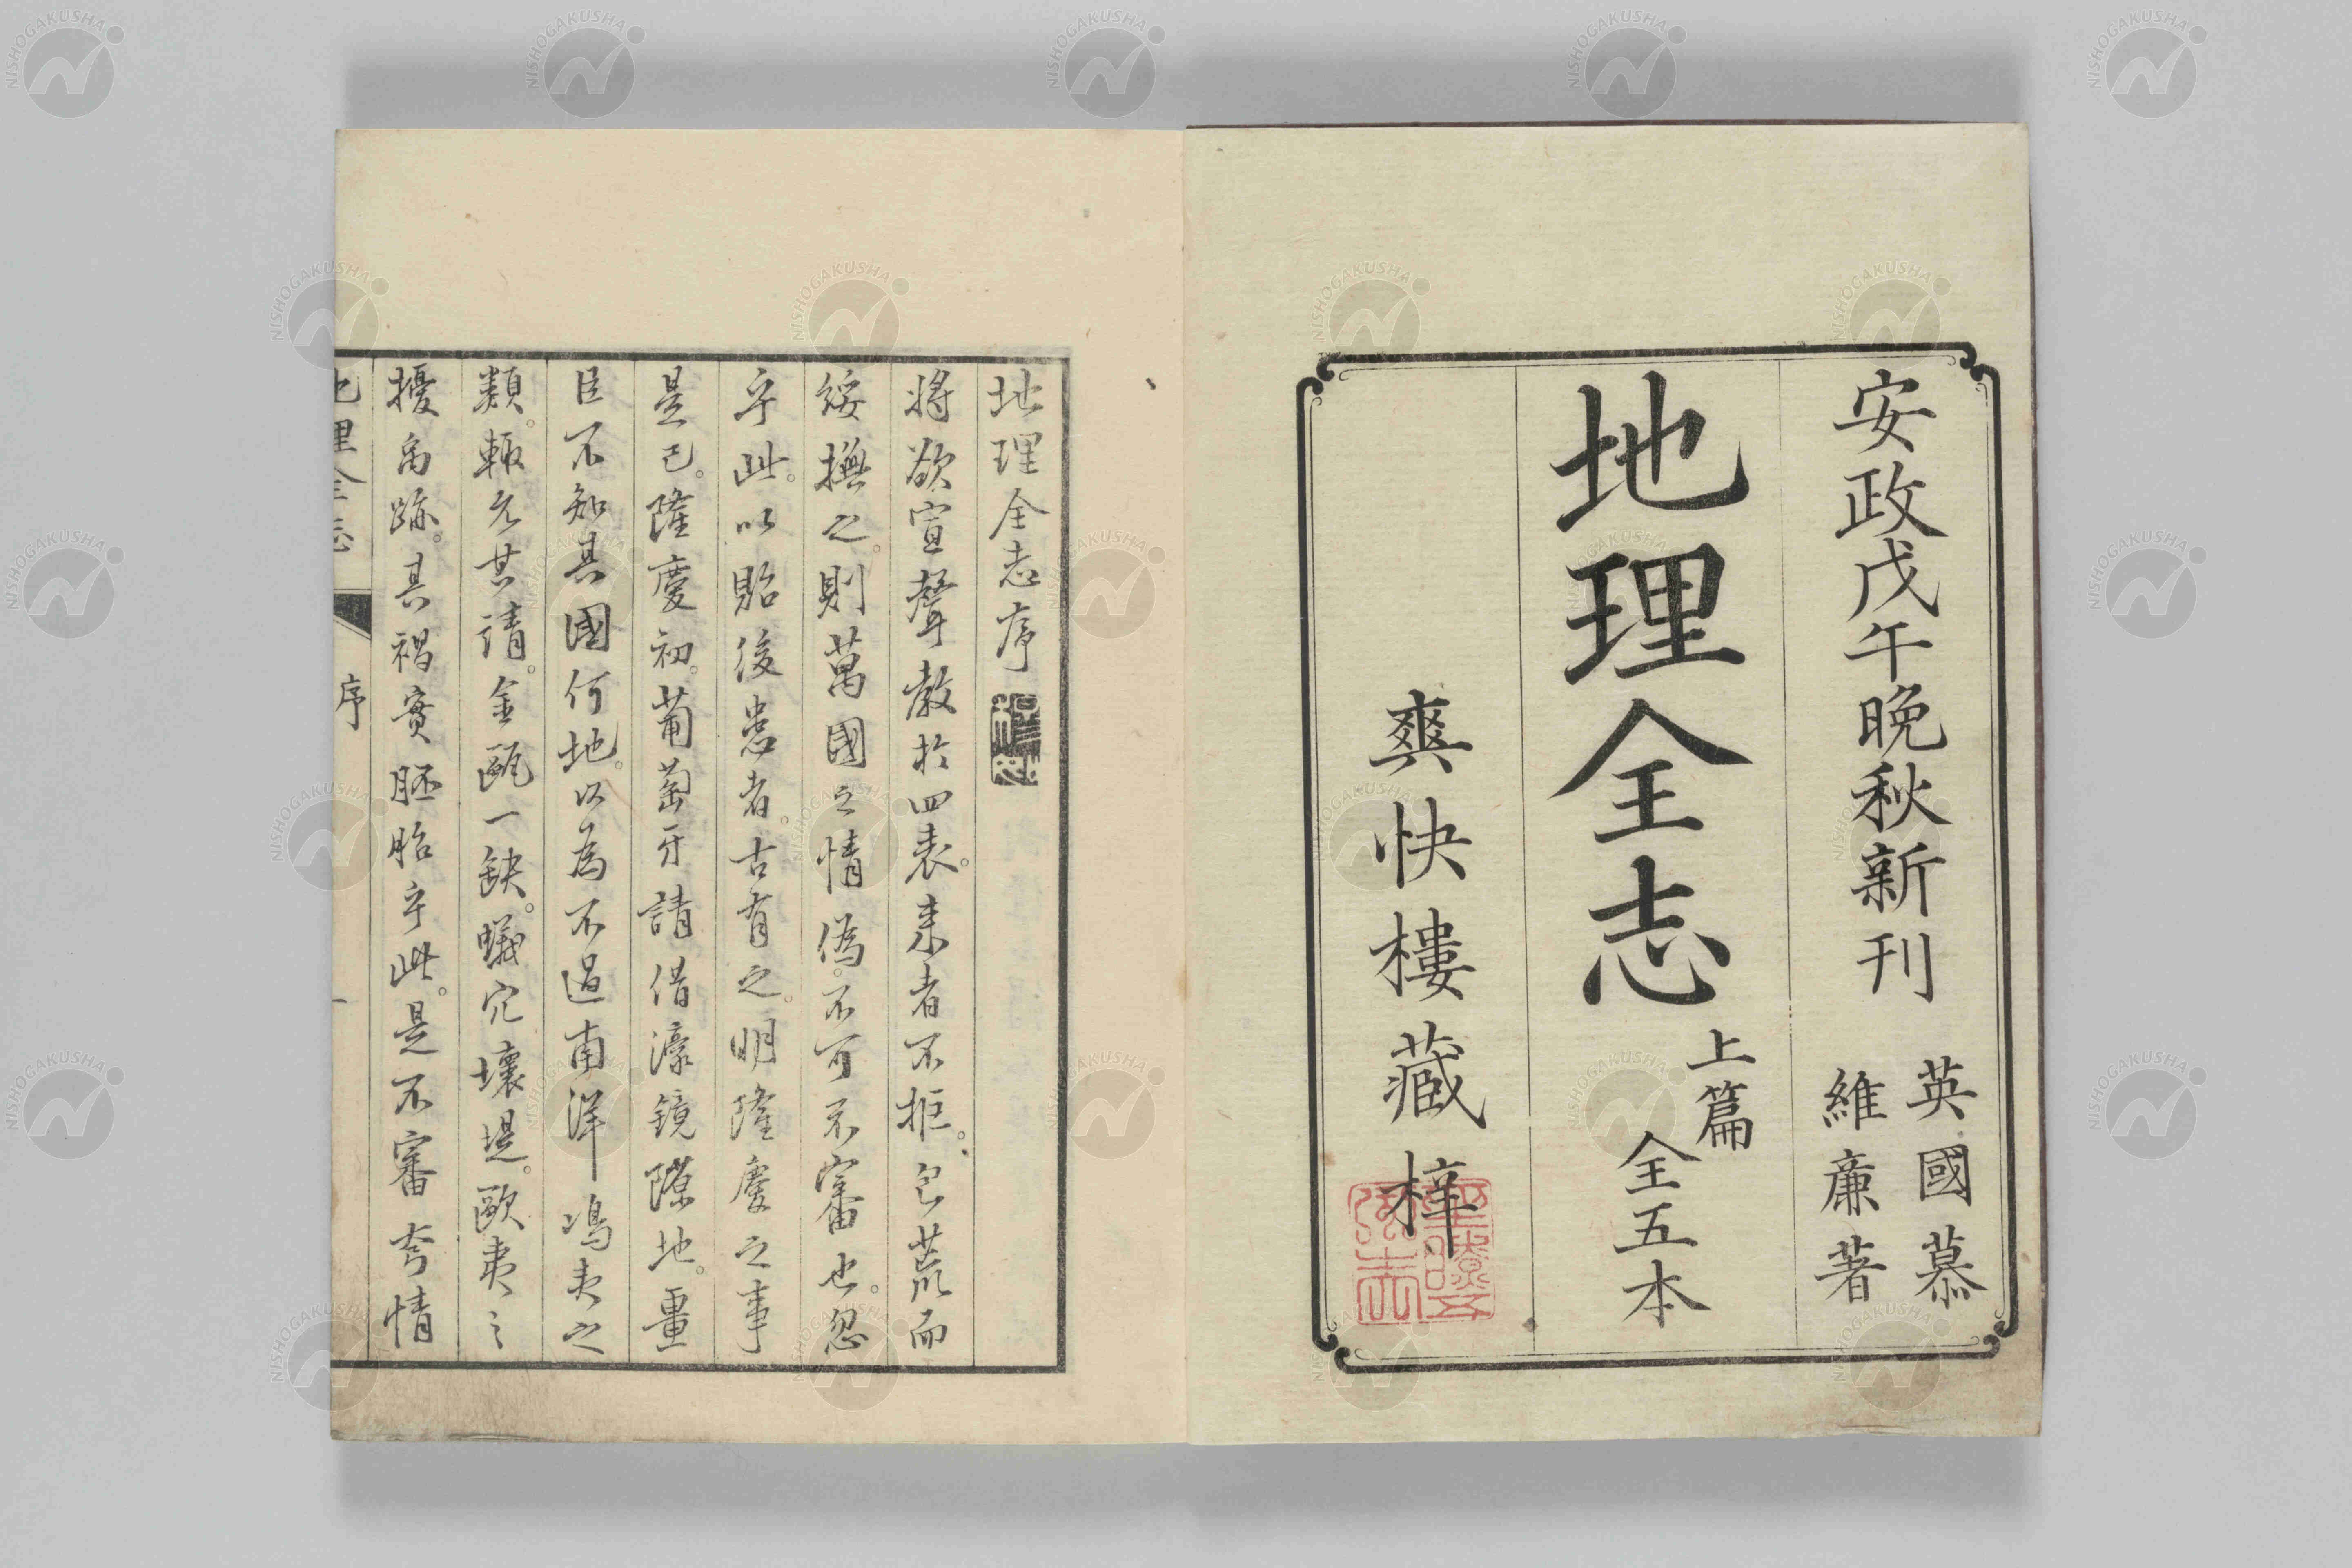 安政戊午晩秋新刊
英國慕
維廉著
地理全志
上篇
全五本
爽快樓藏梓
地理全志序
將欲宣聲教於四表。来者不拒。包荒而
綏撫之。則萬國之情偽。不可不審也。忽
乎此。以貽後患者。古有之。明隆慶之事
是已。隆慶初。葡萄牙請借濠鏡隙地。畺
臣不知其國何地。以為不過南洋馮夷之
類。輒允其請。金甌一缺。蟻穴壞堤。歐夷之
擾禹跡。其禍實胚胎乎此。是不審夸情
地理全志
序
一
NISHOGAKUSHA